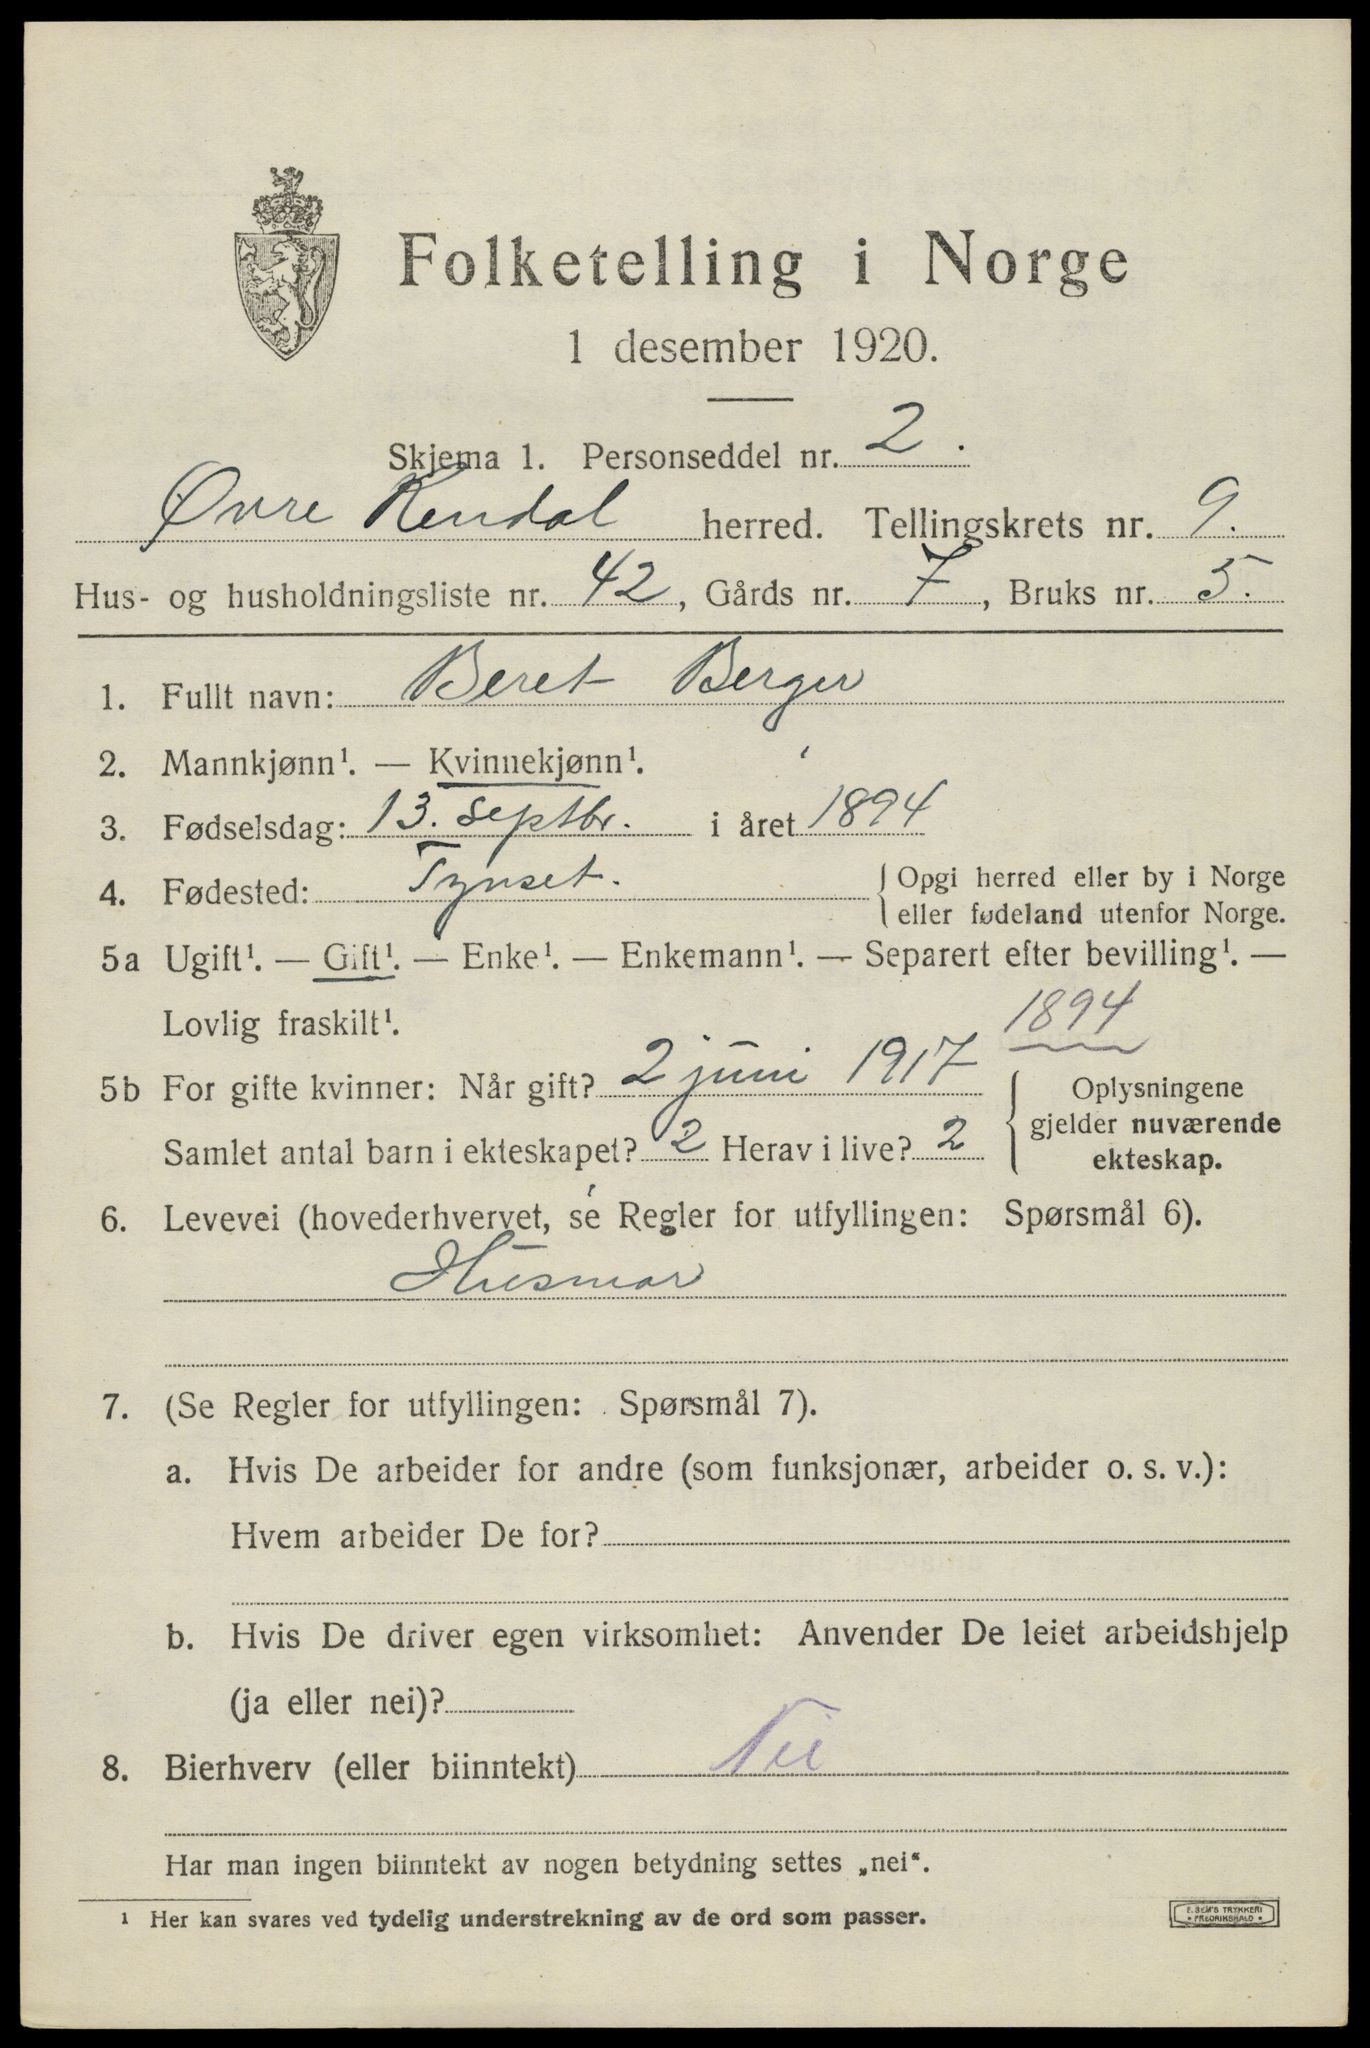 Folketelling i Norge
1 desember 1920.
Skjema 1. Personseddel nr. 2.
Øvre Rendal herred. Tellingskrets nr. 9.
Hus- og husholdningsliste nr. 42, Gårds nr. 7, Bruks nr. 5.
1. Fullt navn: Beret Berger
2. Mannkjønn¹. — Kvinnekjønn¹.
3. Fødselsdag: 13. septbr. i året 1894
4. Fødested: Tynset. { Opgi herred eller by i Norge
eller fødeland utenfor Norge.
5a Ugift¹. — Gift¹. — Enke¹. — Enkemann¹. — Separert efter bevilling¹. —
Lovlig fraskilt¹. 1894
5b For gifte kvinner: Når gift? 2 juni 1917 { Oplysningene
gjelder nuværende
Samlet antal barn i ekteskapet? 2 Herav i live? 2
ekteskap.
6. Levevei (hovederhvervet, se Regler for utfyllingen: Spørsmål 6).
Husmor
7. (Se Regler for utfyllingen: Spørsmål 7).
a. Hvis De arbeider for andre (som funksjonær, arbeider o. s. v.):
Hvem arbeider De for?
b. Hvis De driver egen virksomhet: Anvender De leiet arbeidshjelp
(ja eller nei)?
8. Bierhverv (eller biinntekt) Nei
Har man ingen biinntekt av nogen betydning settes „nei“.
¹ Her kan svares ved tydelig understrekning av de ord som passer.
E. SEM'S TRYKKERI
• FREDRIKSHALD •